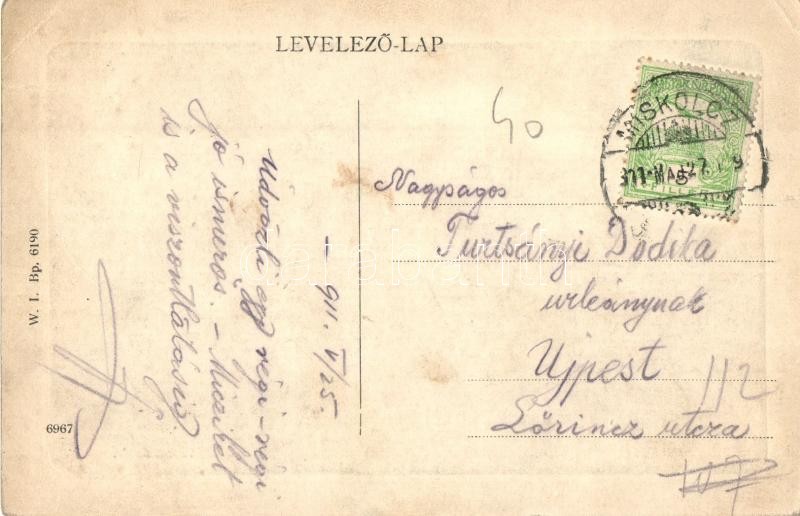 LEVELEZŐ-LAP
40
MISKOLCZ
911 MÁJ 27
Nagyságos
Turtsányi Dodika
urleánynak
Ujpest
Lőrincz utcza
112
- 911. V/25.
Üdvözli egy régi-régi
jó ismerős. - Miczikét
is a viszontlátásig.
W. I. Bp. 6190
6967